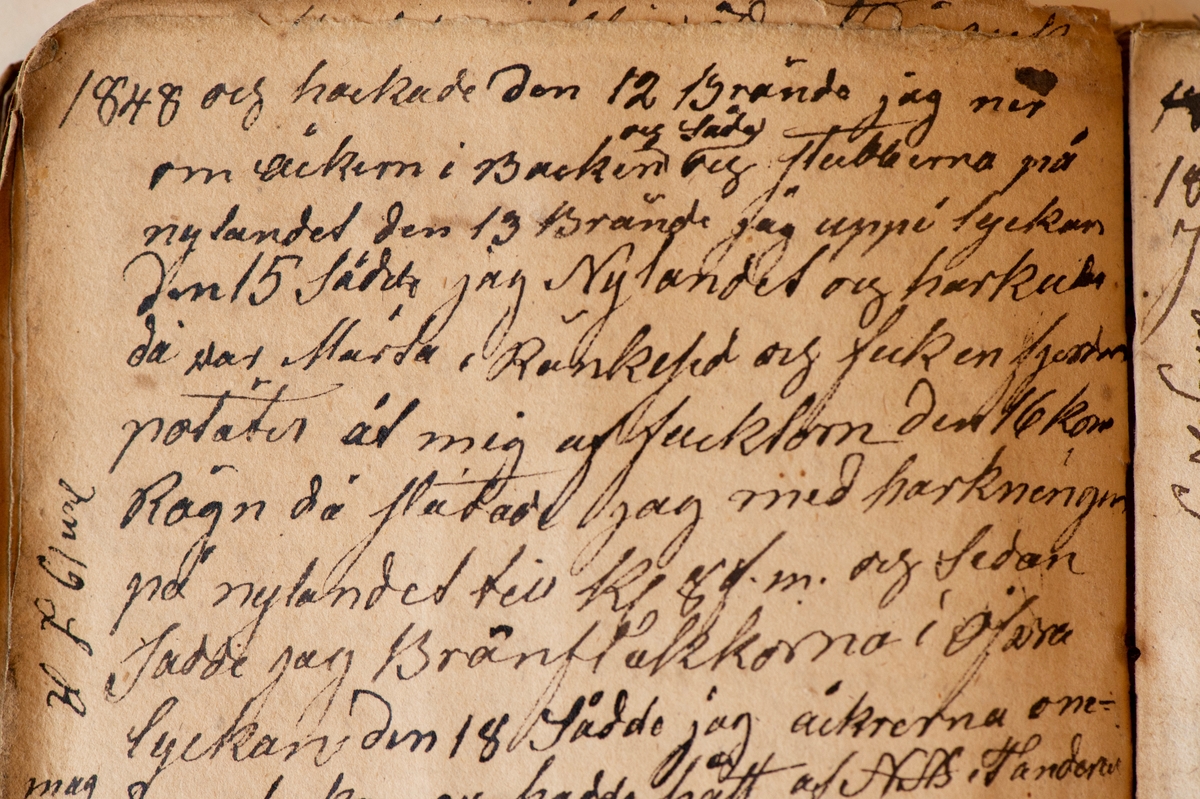 1848 och hackade den 12 Brände jag ner
och Såde
om åckern i Backen och stubberna på
nylandet den 13 Brände jag uppi lyckan
Den 15 Sådde jag Nylandet och harkade
då var Märta i Rånkesed och feck en fjerdin
potäter åt mig af fucktorn den 16 kom
Rägn då slutade jag med harkningen
på nylandet till Kl 8 f.m. och Sedan
Sadde jag Bränfläkkorna i Öfvra
lyckan den 18 Sådde jag åckrerna om=
hadde hått af
mag